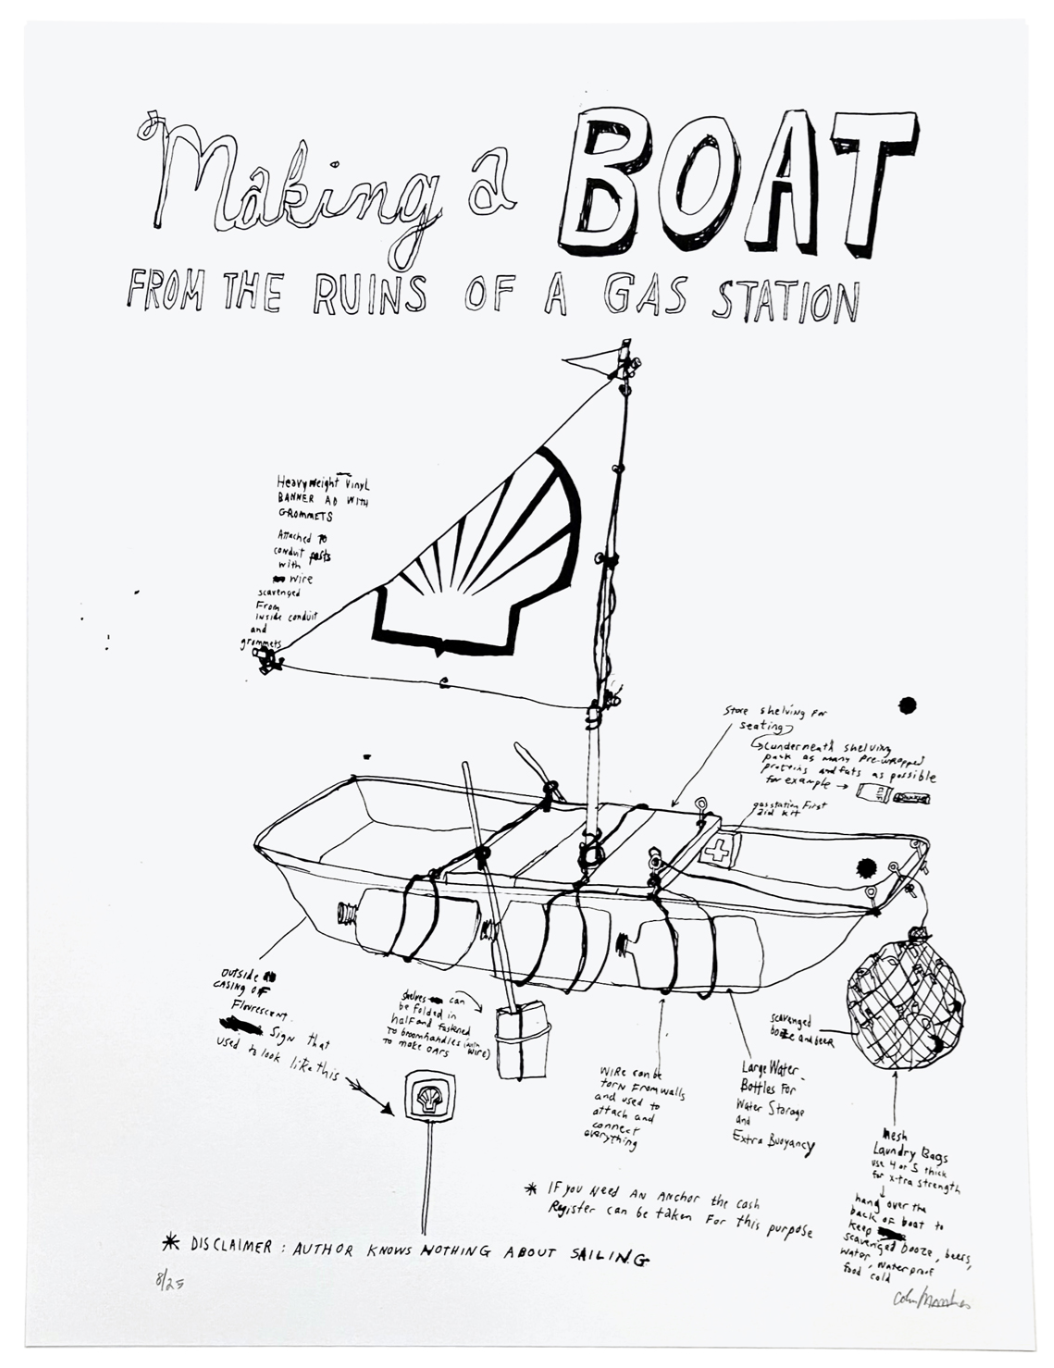 Making a BOAT
FROM THE RUINS OF A GAS STATION
Heavyweight Vinyl
BANNER AD WITH
GROMMETS
Attached To
conduit posts
with
wire
scavenged
From
inside conduit
and
grommets
Store shelving for
seating
underneath shelving
pack as many pre-wrapped
proteins and fats as possible
for example →
gas station First
aid kit
outside
CASING OF
Flourescent
Sign that
used to look like this
shelves can
be folded in
half and fastened
to broomhandles (with
wire)
to make oars
scavenged
booze and beer
WIRE can be
torn from walls
and used to
attach and
connect
everything
Large Water
Bottles For
Water Storage
and
Extra Buoyancy
Mesh
Laundry Bags
use 4 or 5 thick
for x-tra strength
hang over the
back of boat to
keep
scavenged booze, beers,
water, waterproof
food cold
* IF you NEED AN Anchor the cash
Register can be taken For this purpose
* DISCLAIMER: AUTHOR KNOWS NOTHING ABOUT SAILING
8/25